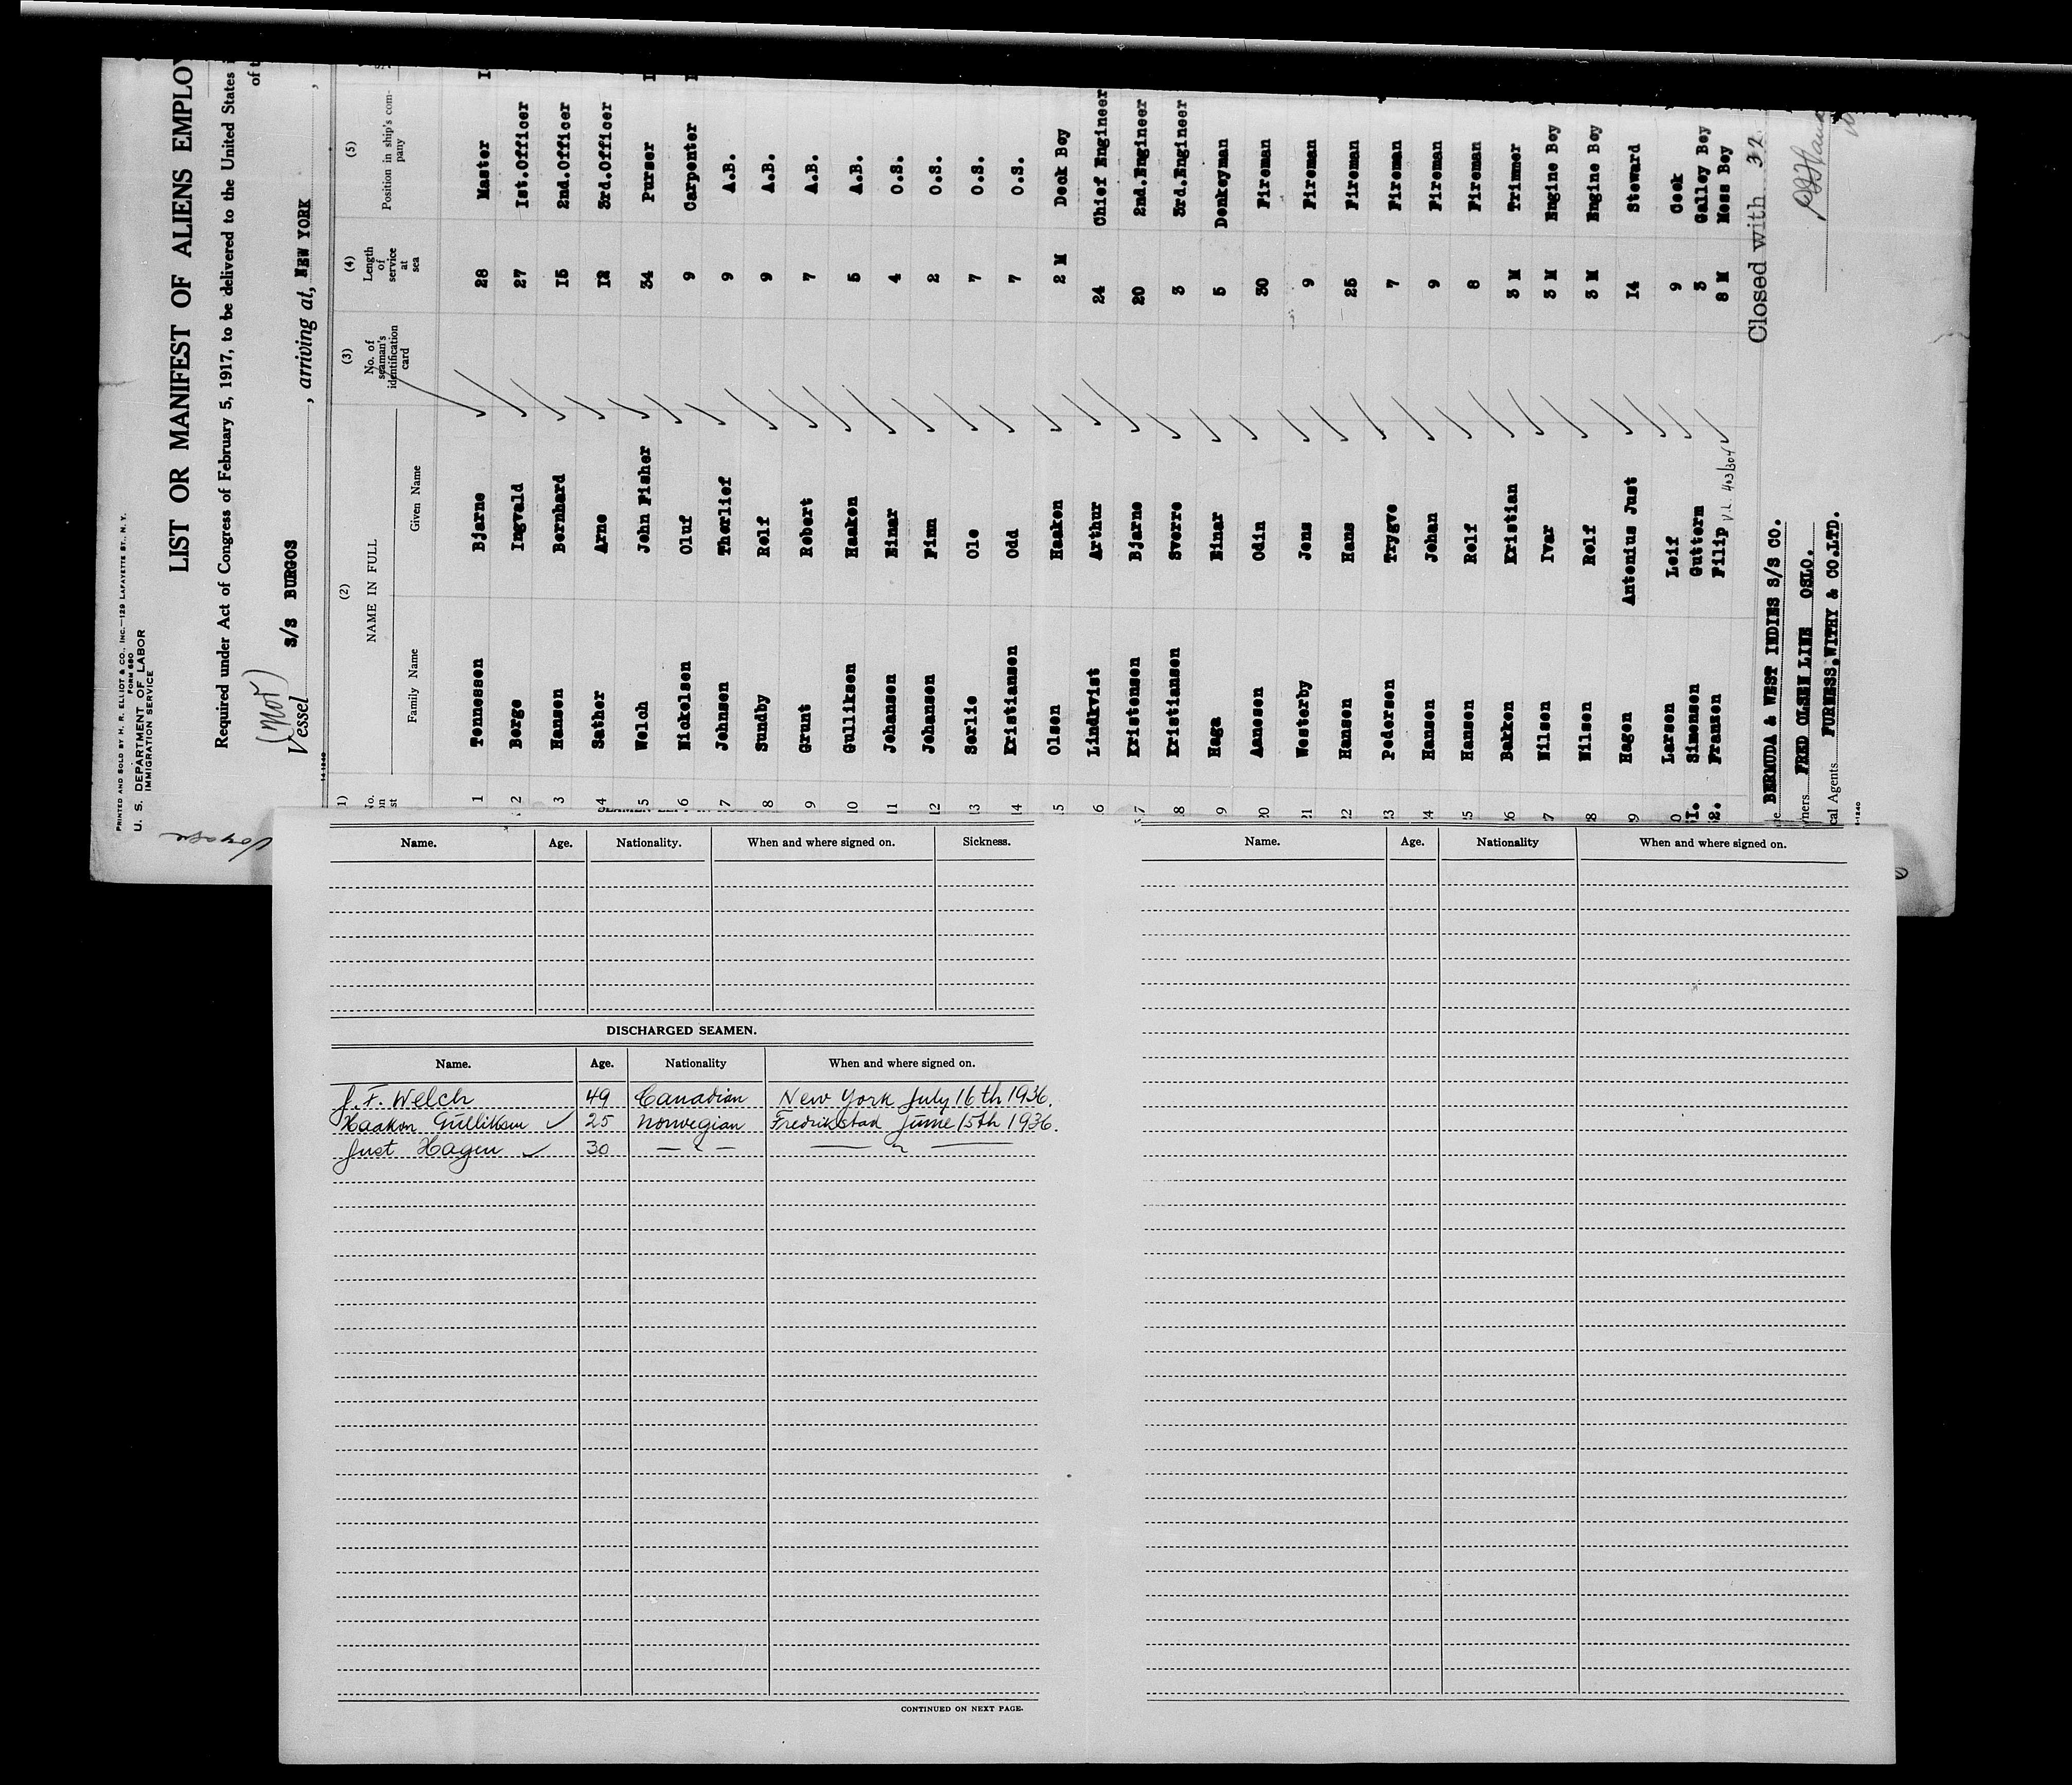 PRINTED AND SOLD BY H. R. ELLIOT & CO., INC.—129 LAFAYETTE ST., N. Y.
FORM 680
U. S. DEPARTMENT OF LABOR
IMMIGRATION SERVICE
LIST OR MANIFEST OF ALIENS EMPLOY
Required under Act of Congress of February 5, 1917, to be delivered to the United States
of t
(mot)
Vessel S/S BURGOS , arriving at, NEW YORK ,
14-1240
Voyage
1) No. on st (2) NAME IN FULL Family Name Given Name (3) No. of seaman's identification card (4) Length of service at sea (5) Position in ship's company
1 Tennessen Bjarne 28 Master I
2 Berge Ingvald 27 Ist.Officer
3 Hansen Bernhard I5 2nd.Officer
4 Sather Arne I2 3rd.Officer
5 Welch John Fisher 34 Purser I
6 Nickelsen Oluf 9 Carpenter I
7 Johnsen Therlief 9 A.B.
8 Sundby Relf 9 A.B.
9 Grunt Robert 7 A.B.
10 Gulliksen Haaken 5 A.B.
11 Johansen Einar 4 O.S.
12 Johansen Finn 2 O.S.
13 Sorlie Ole 7 O.S.
14 Kristiansen Odd 7 O.S.
5 Olsen Haaken 2 M Deck Boy
6 Lindkvist Arthur 24 Chief Engineer
7 Kristensen Bjarne 20 2nd.Engineer
8 Kristiansen Sverre 3 3rd.Engineer
9 Haga Einar 5 Donkeyman
20 Aanesen Odin 30 Fireman
21 Westerby Jens 9 Fireman
22 Hansen Hans 25 Fireman
23 Pedersen Trygve 7 Fireman
24 Hansen Johan 9 Fireman
5 Hansen Rolf 8 Fireman
6 Bakken Kristian 3 M Trimmer
7 Nilsen Ivar 3 M Engine Boy
8 Nilsen Rolf 3 M Engine Boy
9 Hagen Antonius Just I4 Steward
0 Larsen Leif 9 Cook
I. Simensen Gutterm 3 Galley Boy
2. Franzen Filip V.L. 403/304 8 M Mess Boy
Closed with 32.
ne BERMUDA & WEST INDIES S/S CO.
wners FRED OLSEN LINE OSLO.
cal Agents FURNESS,WITHY & CO.LTD.
Name. Age. Nationality. When and where signed on. Sickness.
DISCHARGED SEAMEN.
Name. Age. Nationality When and where signed on.
J. F. Welch 49 Canadian New York July 16th 1936.
Haakon Gulliksen 25 Norwegian Fredrikstad June 15th 1936.
Just Hagen 30 — " — — " —
CONTINUED ON NEXT PAGE.
Name. Age. Nationality When and where signed on.